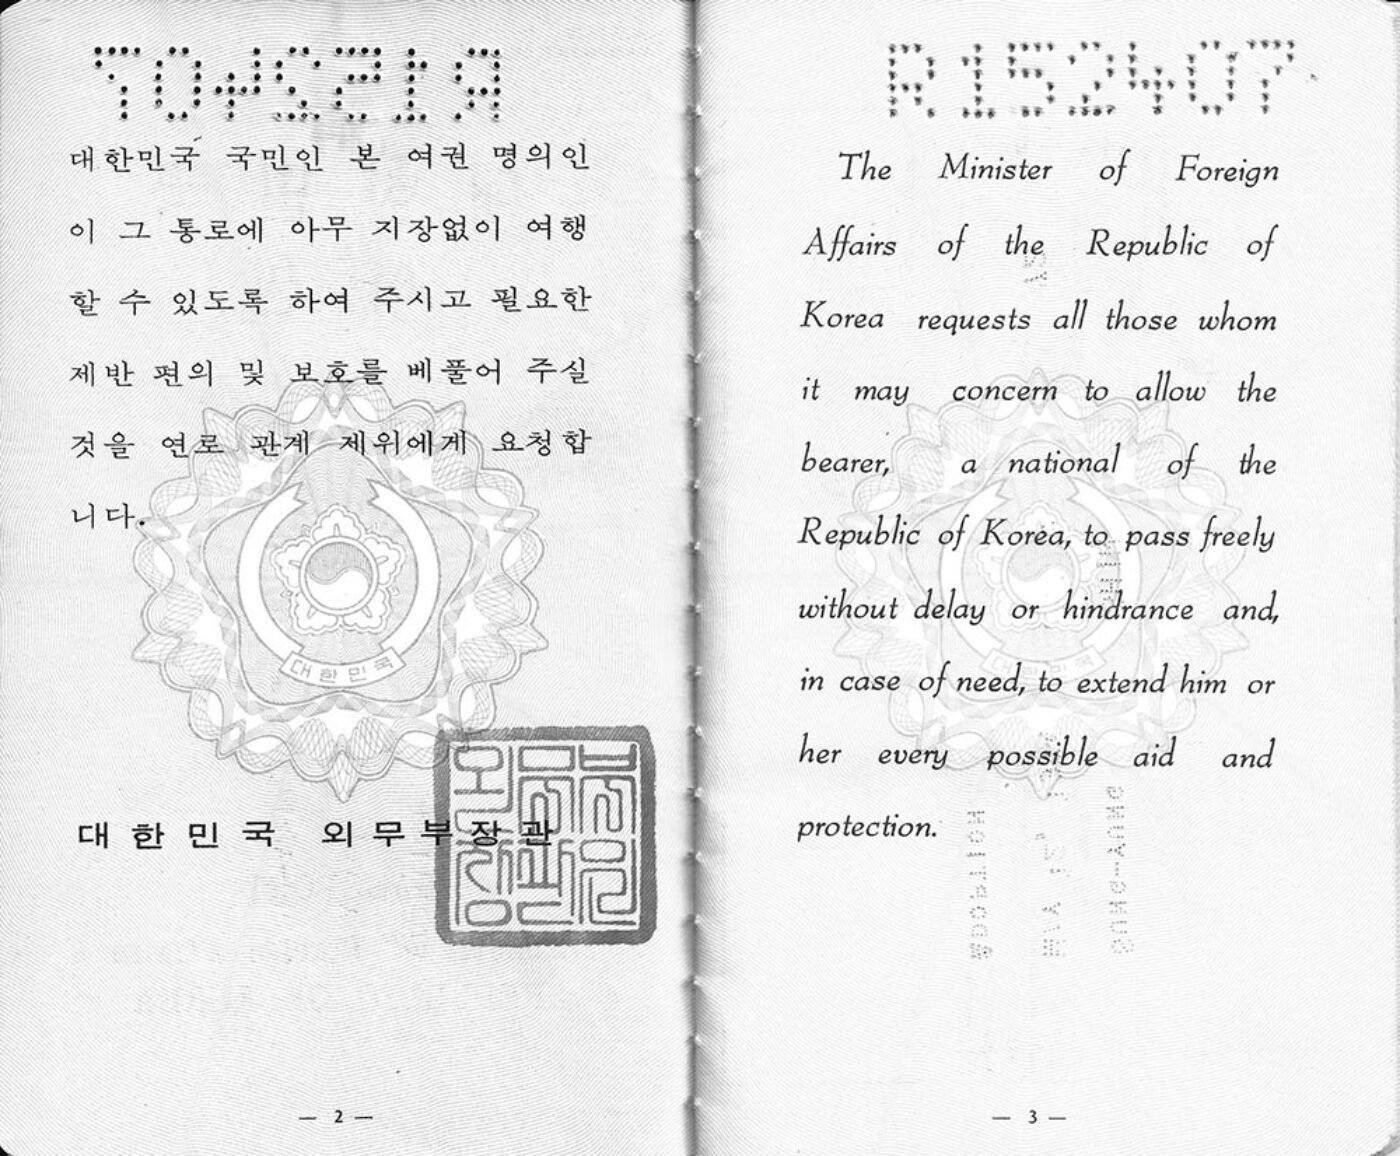 대한민국 국민인 본 여권 명의인
이 그 통로에 아무 지장없이 여행
할 수 있도록 하여 주시고 필요한
제반 편의 및 보호를 베풀어 주실
것을 연로 관계 제위에게 요청합
니다.
대한민국
대한민국 외무부장관
— 2 —
R152407
The Minister of Foreign
Affairs of the Republic of
Korea requests all those whom
it may concern to allow the
bearer, a national of the
Republic of Korea, to pass freely
without delay or hindrance and,
in case of need, to extend him or
her every possible aid and
protection.
— 3 —